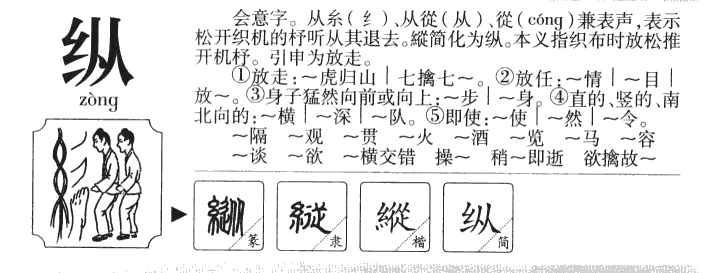 纵
zòng
会意字。从糸(纟)、从從(从)、從(cóng)兼表声,表示
松开织机的杼听从其退去。縱简化为纵。本义指织布时放松推
开机杼。引申为放走。
①放走:～虎归山｜七擒七～。②放任:～情｜～目｜
放～。③身子猛然向前或向上:～步｜～身。④直的、竖的、南
北向的:～横｜～深｜～队。⑤即使:～使｜～然｜～令。
～隔 ～观 ～贯 ～火 ～酒 ～览 ～马 ～容
～谈 ～欲 ～横交错 操～ 稍～即逝 欲擒故～
縱 篆 縱 隶 縱 楷 纵 简